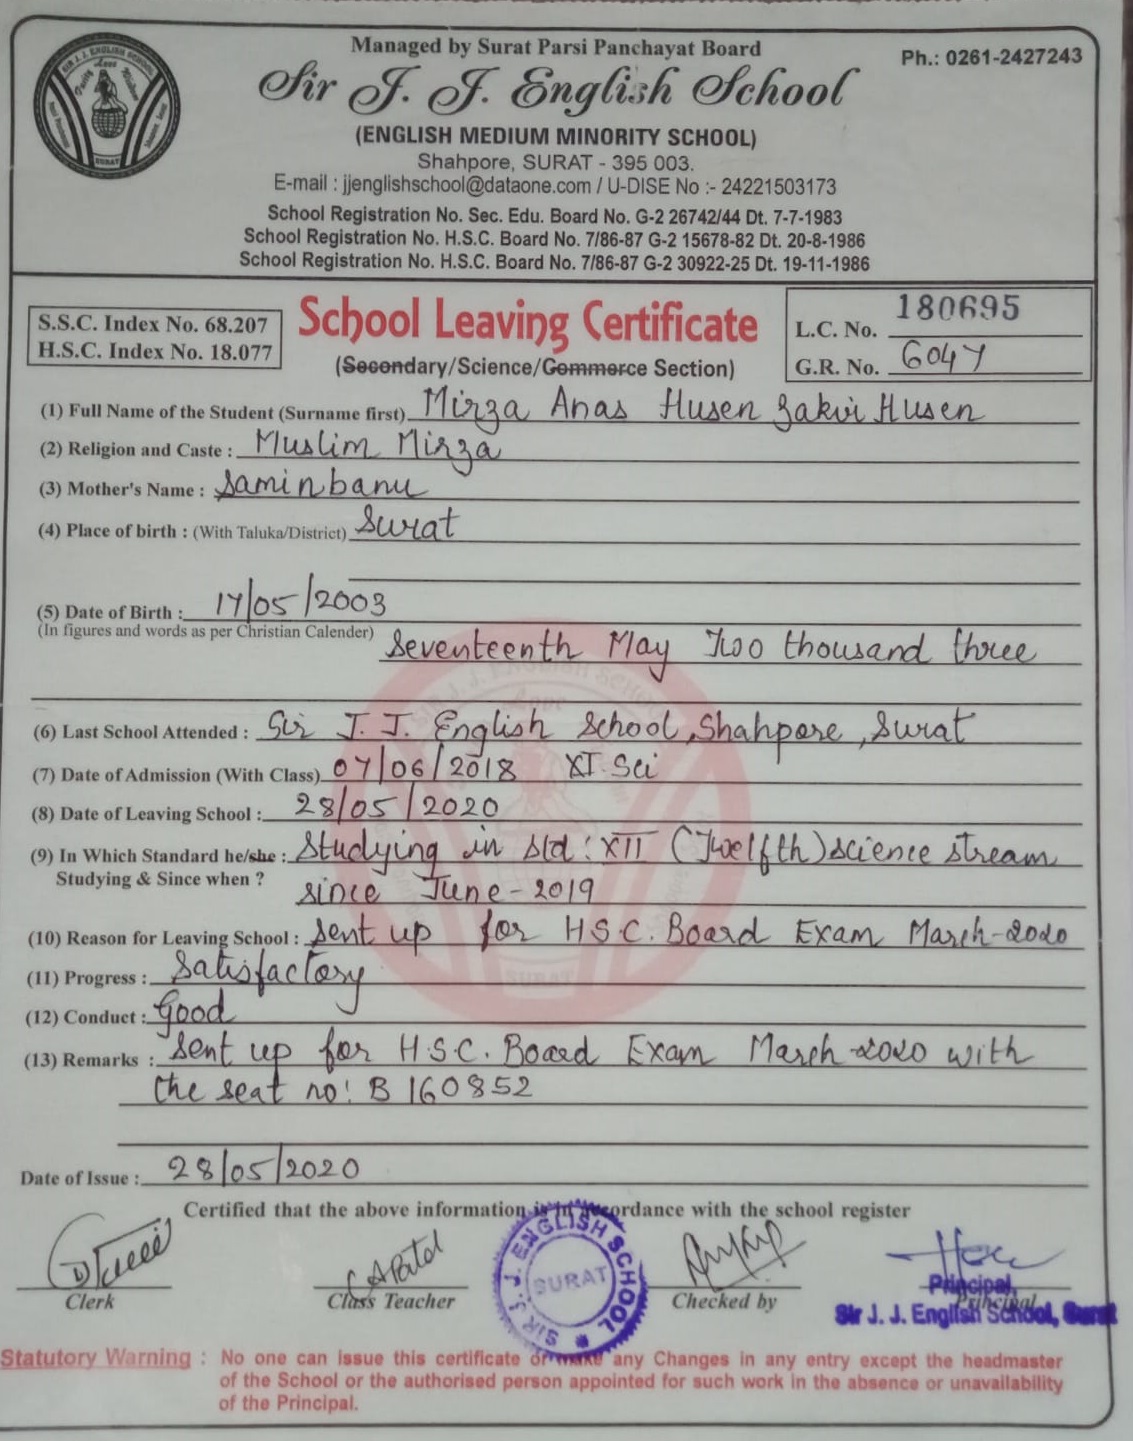 Managed by Surat Parsi Panchayat Board
Ph.: 0261-2427243
Sir J. J. English School
(ENGLISH MEDIUM MINORITY SCHOOL)
Shahpore, SURAT - 395 003.
E-mail : jjenglishschool@dataone.com / U-DISE No :- 24221503173
School Registration No. Sec. Edu. Board No. G-2 26742/44 Dt. 7-7-1983
School Registration No. H.S.C. Board No. 7/86-87 G-2 15678-82 Dt. 20-8-1986
School Registration No. H.S.C. Board No. 7/86-87 G-2 30922-25 Dt. 19-11-1986
S.S.C. Index No. 68.207
H.S.C. Index No. 18.077
School Leaving Certificate
(Secondary/Science/Commerce Section)
L.C. No. 180695
G.R. No. 6047
(1) Full Name of the Student (Surname first) Mirza Anas Husen Zakir Husen
(2) Religion and Caste : Muslim Mirza
(3) Mother's Name : Saminbanu
(4) Place of birth : (With Taluka/District) Surat
(5) Date of Birth : 17/05/2003
(In figures and words as per Christian Calender) Seventeenth May Two thousand three
(6) Last School Attended : Sir J. J. English School, Shahpore, Surat
(7) Date of Admission (With Class) 07/06/2018 XI Sci
(8) Date of Leaving School : 28/05/2020
(9) In Which Standard he/she : Studying in std : XII (Twelfth) science stream
Studying & Since when ? since June - 2019
(10) Reason for Leaving School : Sent up for H.S.C. Board Exam March-2020
(11) Progress : Satisfactory
(12) Conduct : Good
(13) Remarks : Sent up for H.S.C. Board Exam March-2020 with
the seat no: B 160852
Date of Issue : 28/05/2020
Certified that the above information is in accordance with the school register
Clerk
Class Teacher
SIR J. J. ENGLISH SCHOOL
SURAT
Checked by
Principal
Principal,
Sir J. J. English School, Surat
Statutory Warning : No one can issue this certificate or make any Changes in any entry except the headmaster
of the School or the authorised person appointed for such work in the absence or unavailability
of the Principal.